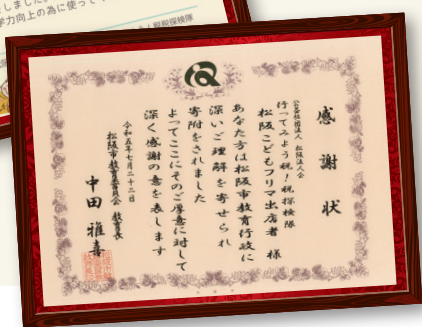 しました
学力向上の為に使って
税探検隊
感謝状
公益社団法人 松阪法人会
行ってみよう税!税探検隊
松阪こどもフリマ出店者 様
あなた方は松阪市教育行政に
深いご理解を寄せられ
寄附をされました
よってここにそのご厚意に対して
深く感謝の意を表します
令和五年七月二十二日
松阪市教育委員会 教育長
中田雅喜